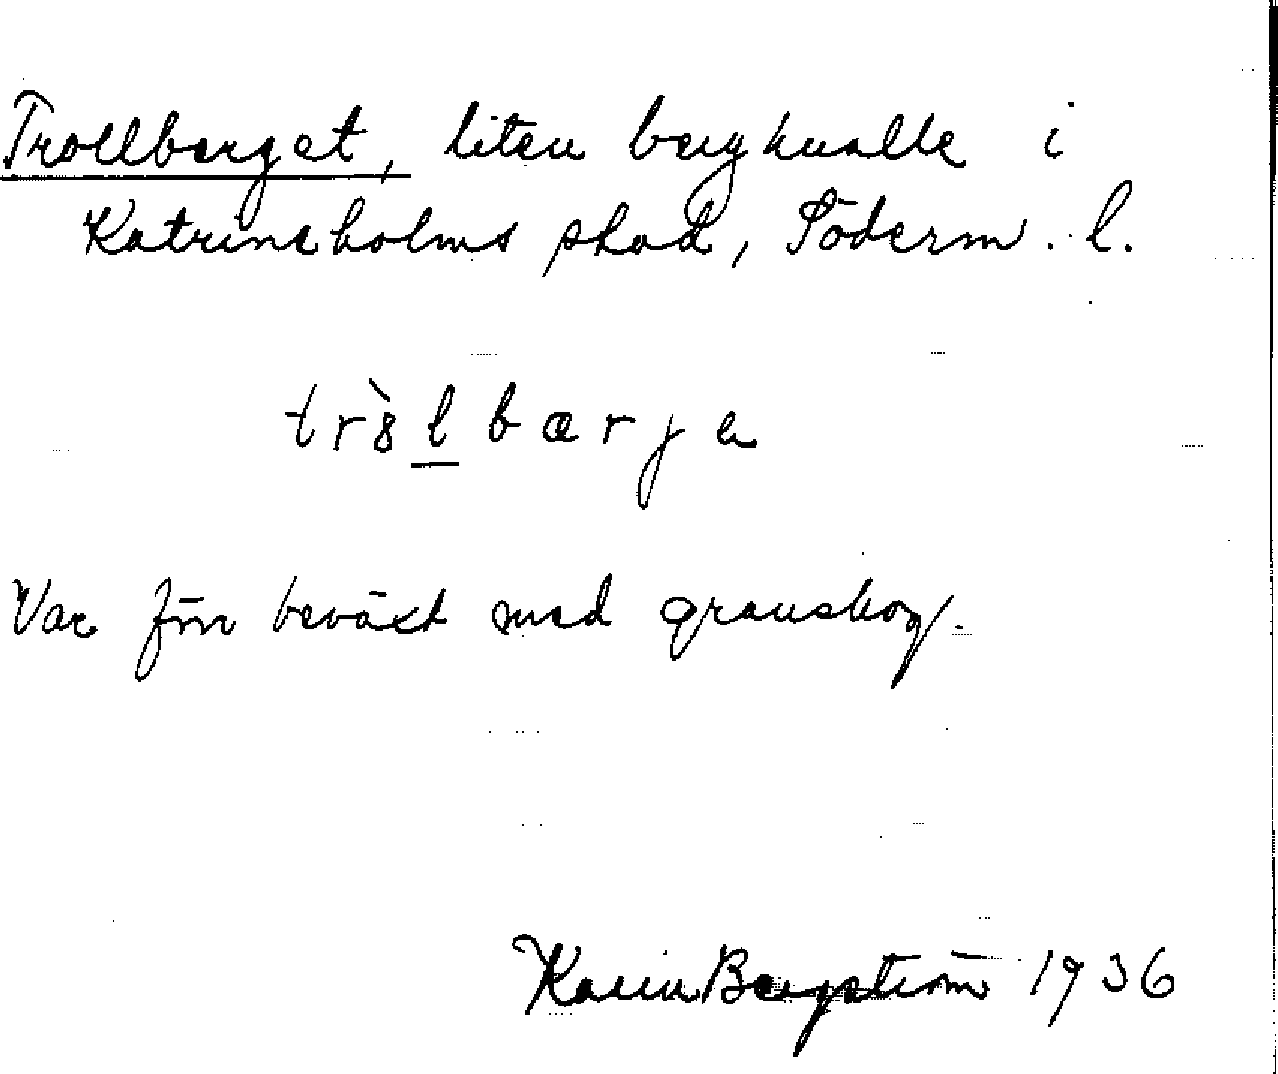 Trollberget, liten bergknalle i
Katrineholms stad, Söderm. l.
trò̀8l̲bærje
Var förr beväxt med granskog.
Karin Bergström 1936